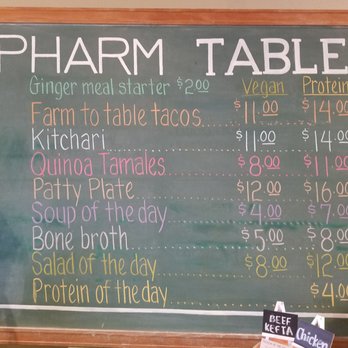 PHARM TABLE
Ginger meal starter $2.00 Vegan Protein
Farm to table tacos $11.00 $14.00
Kitchari $11.00 $14.00
Quinoa Tamales $8.00 $11.00
Patty Plate $12.00 $16.00
Soup of the day $4.00 $7.00
Bone broth $5.00 $8.00
Salad of the day $8.00 $12.00
Protein of the day $4.00
BEEF KEFTA
Chicken